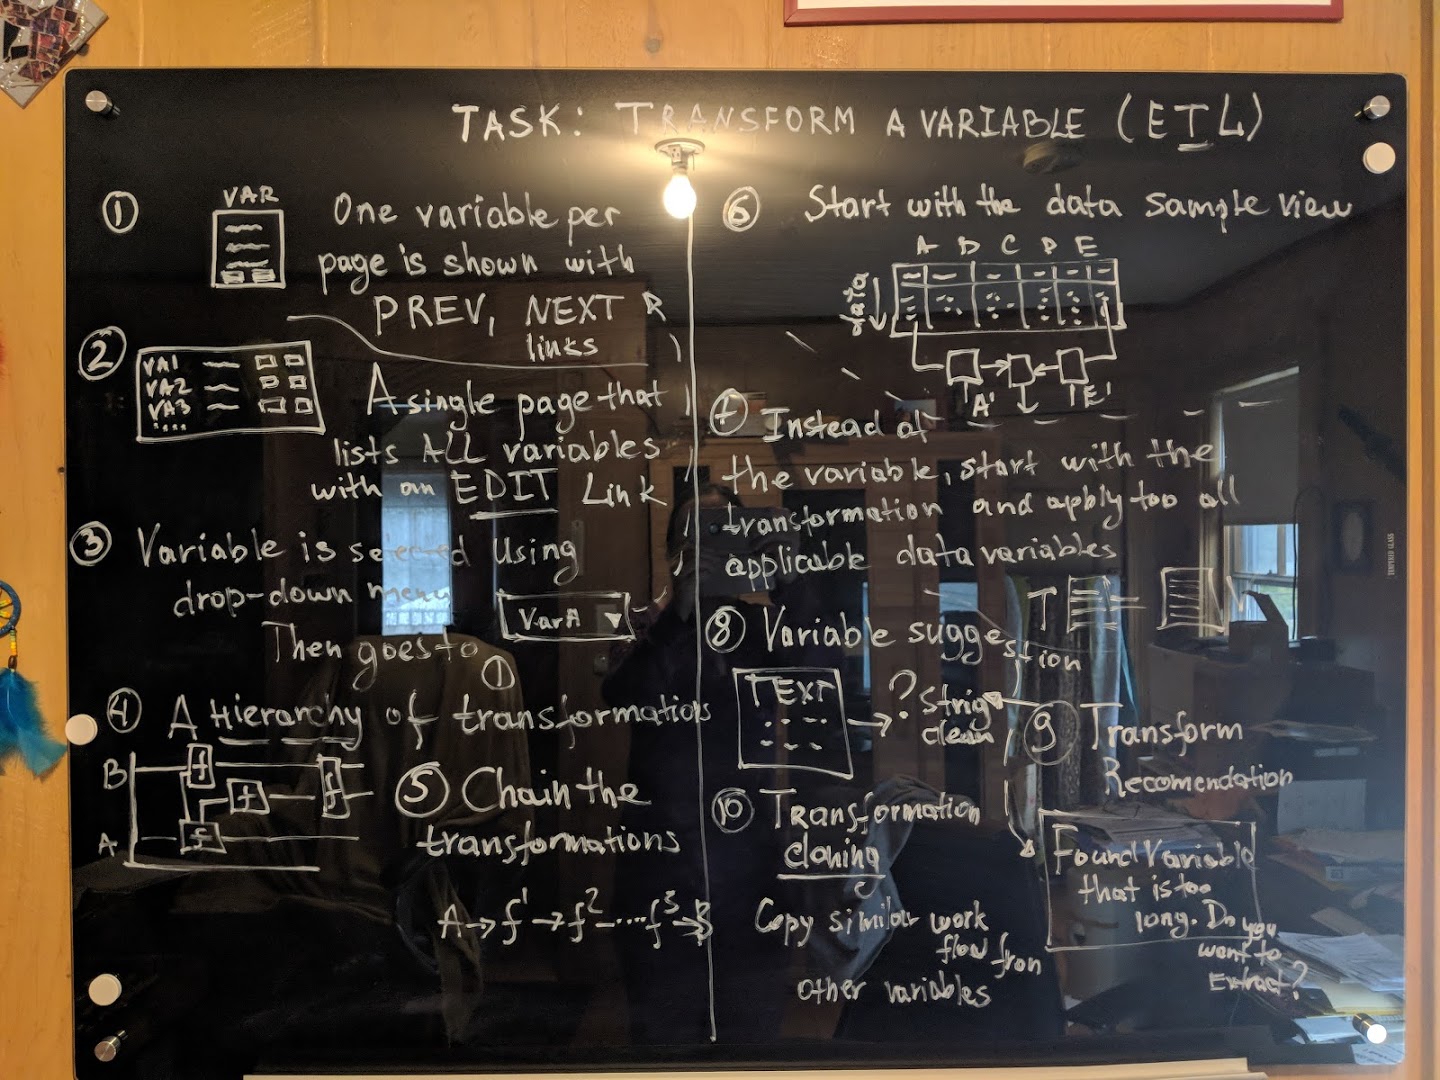 TASK: TRANSFORM A VARIABLE (ETL)
① VAR
One variable per
page is shown with
PREV, NEXT
links
②
VA1
VA2
VA3
A single page that
lists ALL variables
with an EDIT Link
③ Variable is selected Using
drop-down menu
VarA
Then goes to ①
④ A Hierarchy of transformations
B
f
f
f
A
f
⑤ Chain the
transformations
A → f¹ → f² ---- f³ → B
⑥ Start with the data sample view
A B C D E
data
A' E'
⑦ Instead of
the variable, start with the
transformation and apply too all
applicable data variables
T
⑧ Variable suggestion
TEXT
? Strig
clean
⑨ Transform
Recomendation
Found Variable
that is too
long. Do you
want to
Extract?
⑩ Transformation
cloning
Copy similar work
flow fron
other variables
TEMPERED GLASS